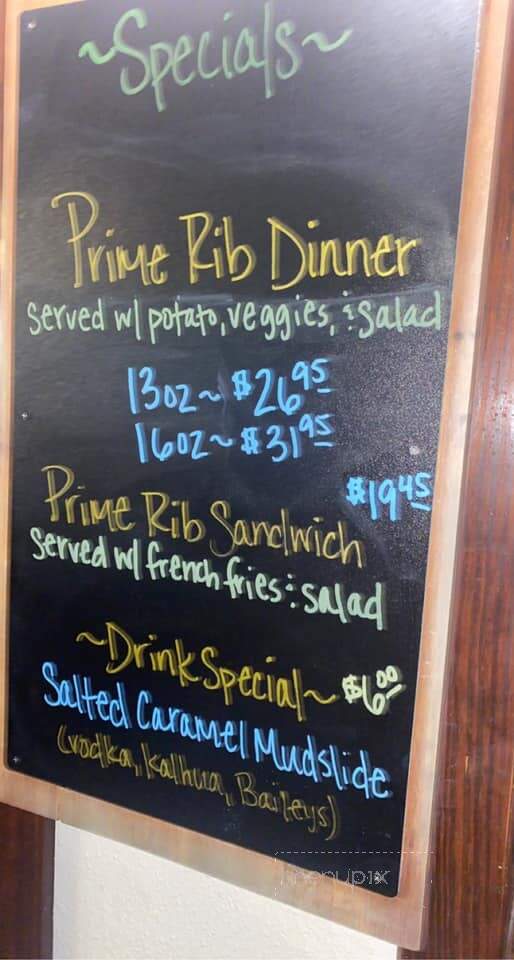 ~Specials~
Prime Rib Dinner
served w/ potato, veggies, & salad
13oz ~ $26.95
16oz ~ $31.95
$19.45
Prime Rib Sandwich
served w/ french fries & salad
~Drink Special~ $6.00
Salted Caramel Mudslide
(vodka, kalhua, Baileys)
menupix